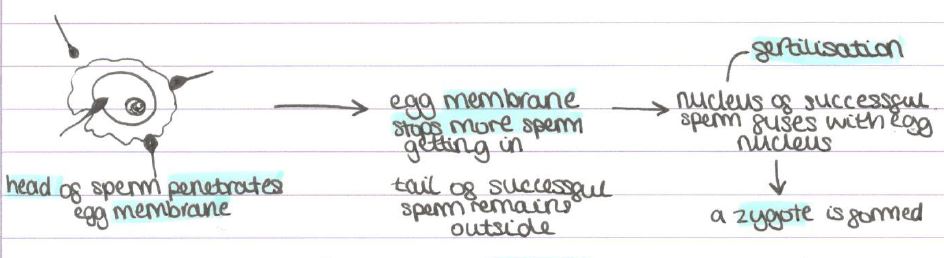 head of sperm penetrates
egg membrane
egg membrane
stops more sperm
getting in
tail of successful
sperm remains
outside
fertilisation
nucleus of successful
sperm fuses with egg
nucleus
a zygote is formed